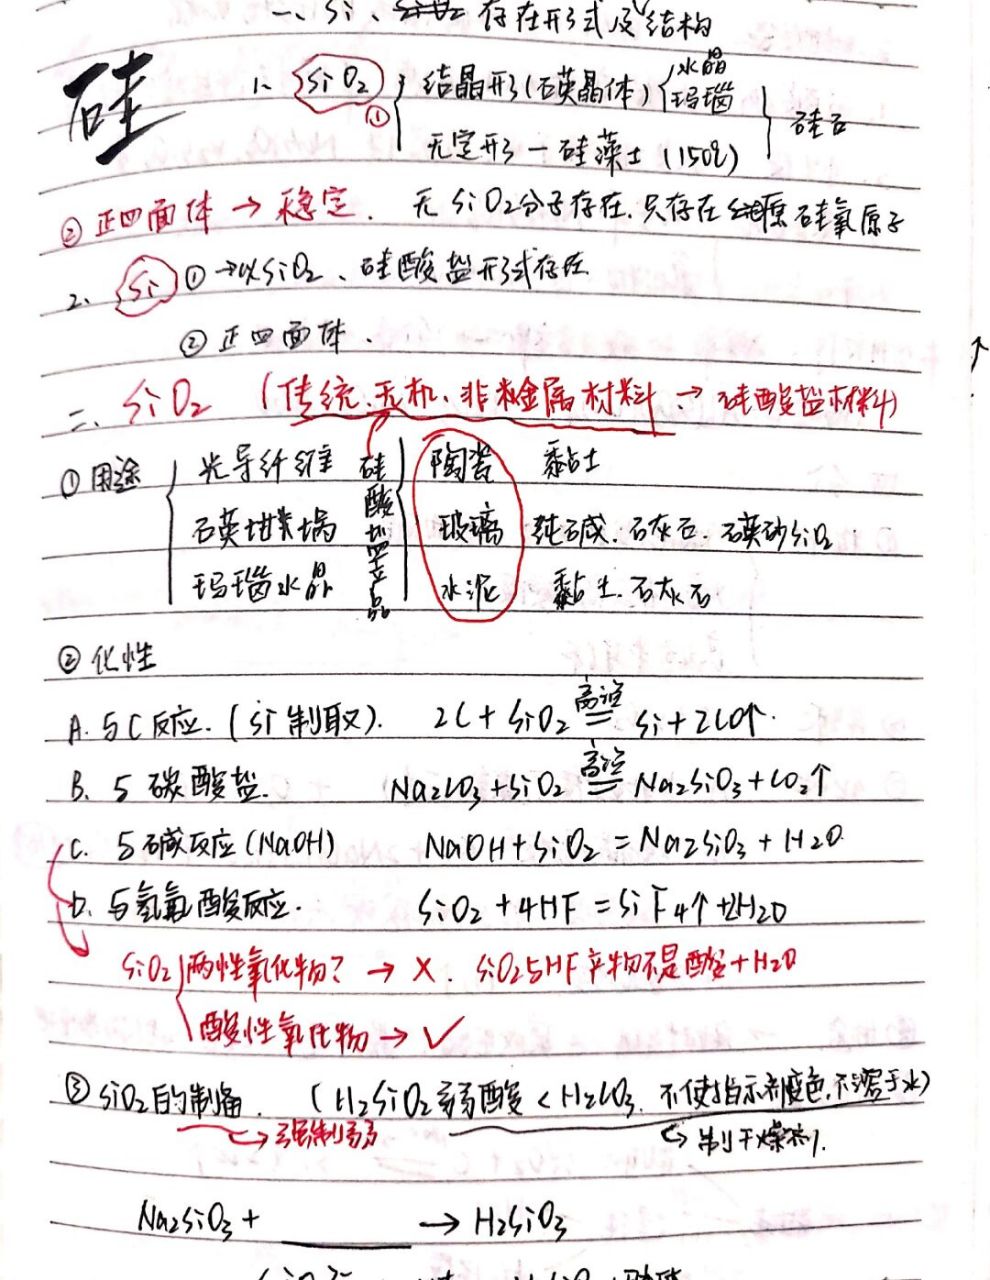 一、Si、存在形式及结构
硅
1、SiO₂ ① { 结晶形(石英晶体) { 水晶 玛瑙 } 硅石
无定形—硅藻土(150℃)
② 正四面体 → 稳定. 无SiO₂分子存在.只存在硅氧原子
2、Si ① →以SiO₂、硅酸盐形式存在
② 正四面体.
二、SiO₂ (传统.无机.非金属材料 → 硅酸盐材料)
① 用途 { 光导纤维 硅酸盐产品 { 陶瓷 黏土
石英坩埚 玻璃 纯碱.石灰石.石英砂SiO₂
玛瑙水晶 水泥 黏土.石灰石
② 化性
A. 与C反应.(Si制取). 2C+SiO₂ 高温== Si+2CO↑.
B. 与碳酸盐. Na₂CO₃+SiO₂ 高温== Na₂SiO₃+CO₂↑
C. 与碱反应(NaOH) NaOH+SiO₂=Na₂SiO₃+H₂O
D. 与氢氟酸反应. SiO₂+4HF=SiF₄↑+2H₂O
SiO₂ { 两性氧化物? → ×. SiO₂与HF产物不是酸+H₂O
酸性氧化物 → ✓
③ SiO₂的制备. (H₂SiO₂弱酸<H₂CO₃.不使指示剂变色.不溶于水)
→强制弱 →制干燥剂.
Na₂SiO₃+____→H₂SiO₃